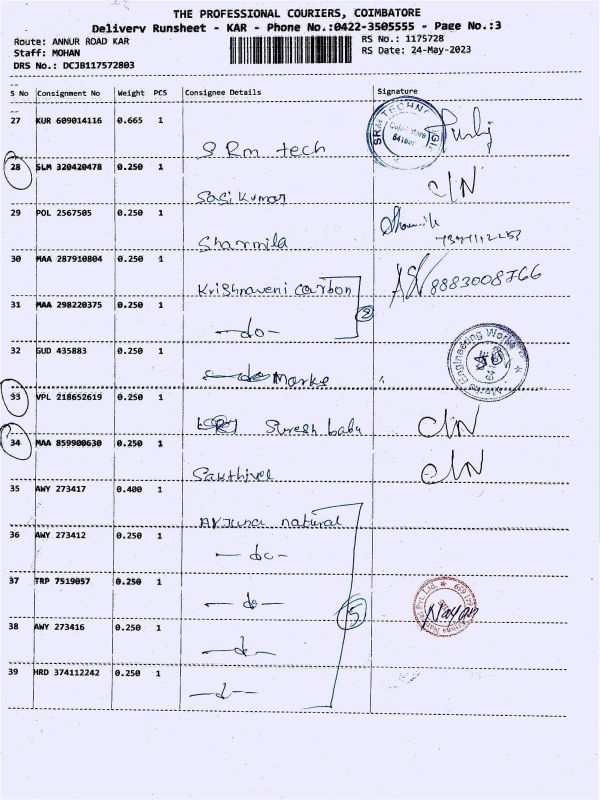 THE PROFESSIONAL COURIERS, COIMBATORE
Delivery Runsheet - KAR - Phone No.:0422-3505555 - Page No.:3
Route: ANNUR ROAD KAR RS No.: 1175728
Staff: MOHAN RS Date: 24-May-2023
DRS No.: DCJB117572803
S No Consignment No Weight PCS Consignee Details Signature
27 KUR 609014116 0.665 1
SRM TECHNO
SRm tech
28 SLM 320420478 0.250 1
Sasikumar C/N
29 POL 2567505 0.250 1
Sharmila
30 MAA 287910804 0.250 1
Krishnaveni carbon 8883008766
31 MAA 298220375 0.250 1
2
-do-
32 GUD 435883 0.250 1
Engineering Works
Marks
33 VPL 218652619 0.250 1
Suresh babu C/N
34 MAA 859900630 0.250 1
Sakthivel C/N
35 AWY 273417 0.400 1
Arjuna natural
36 AWY 273412 0.250 1
-do-
37 TRP 7519057 0.250 1
-do- 5 Nayan
38 AWY 273416 0.250 1
-do-
39 HRD 374112242 0.250 1